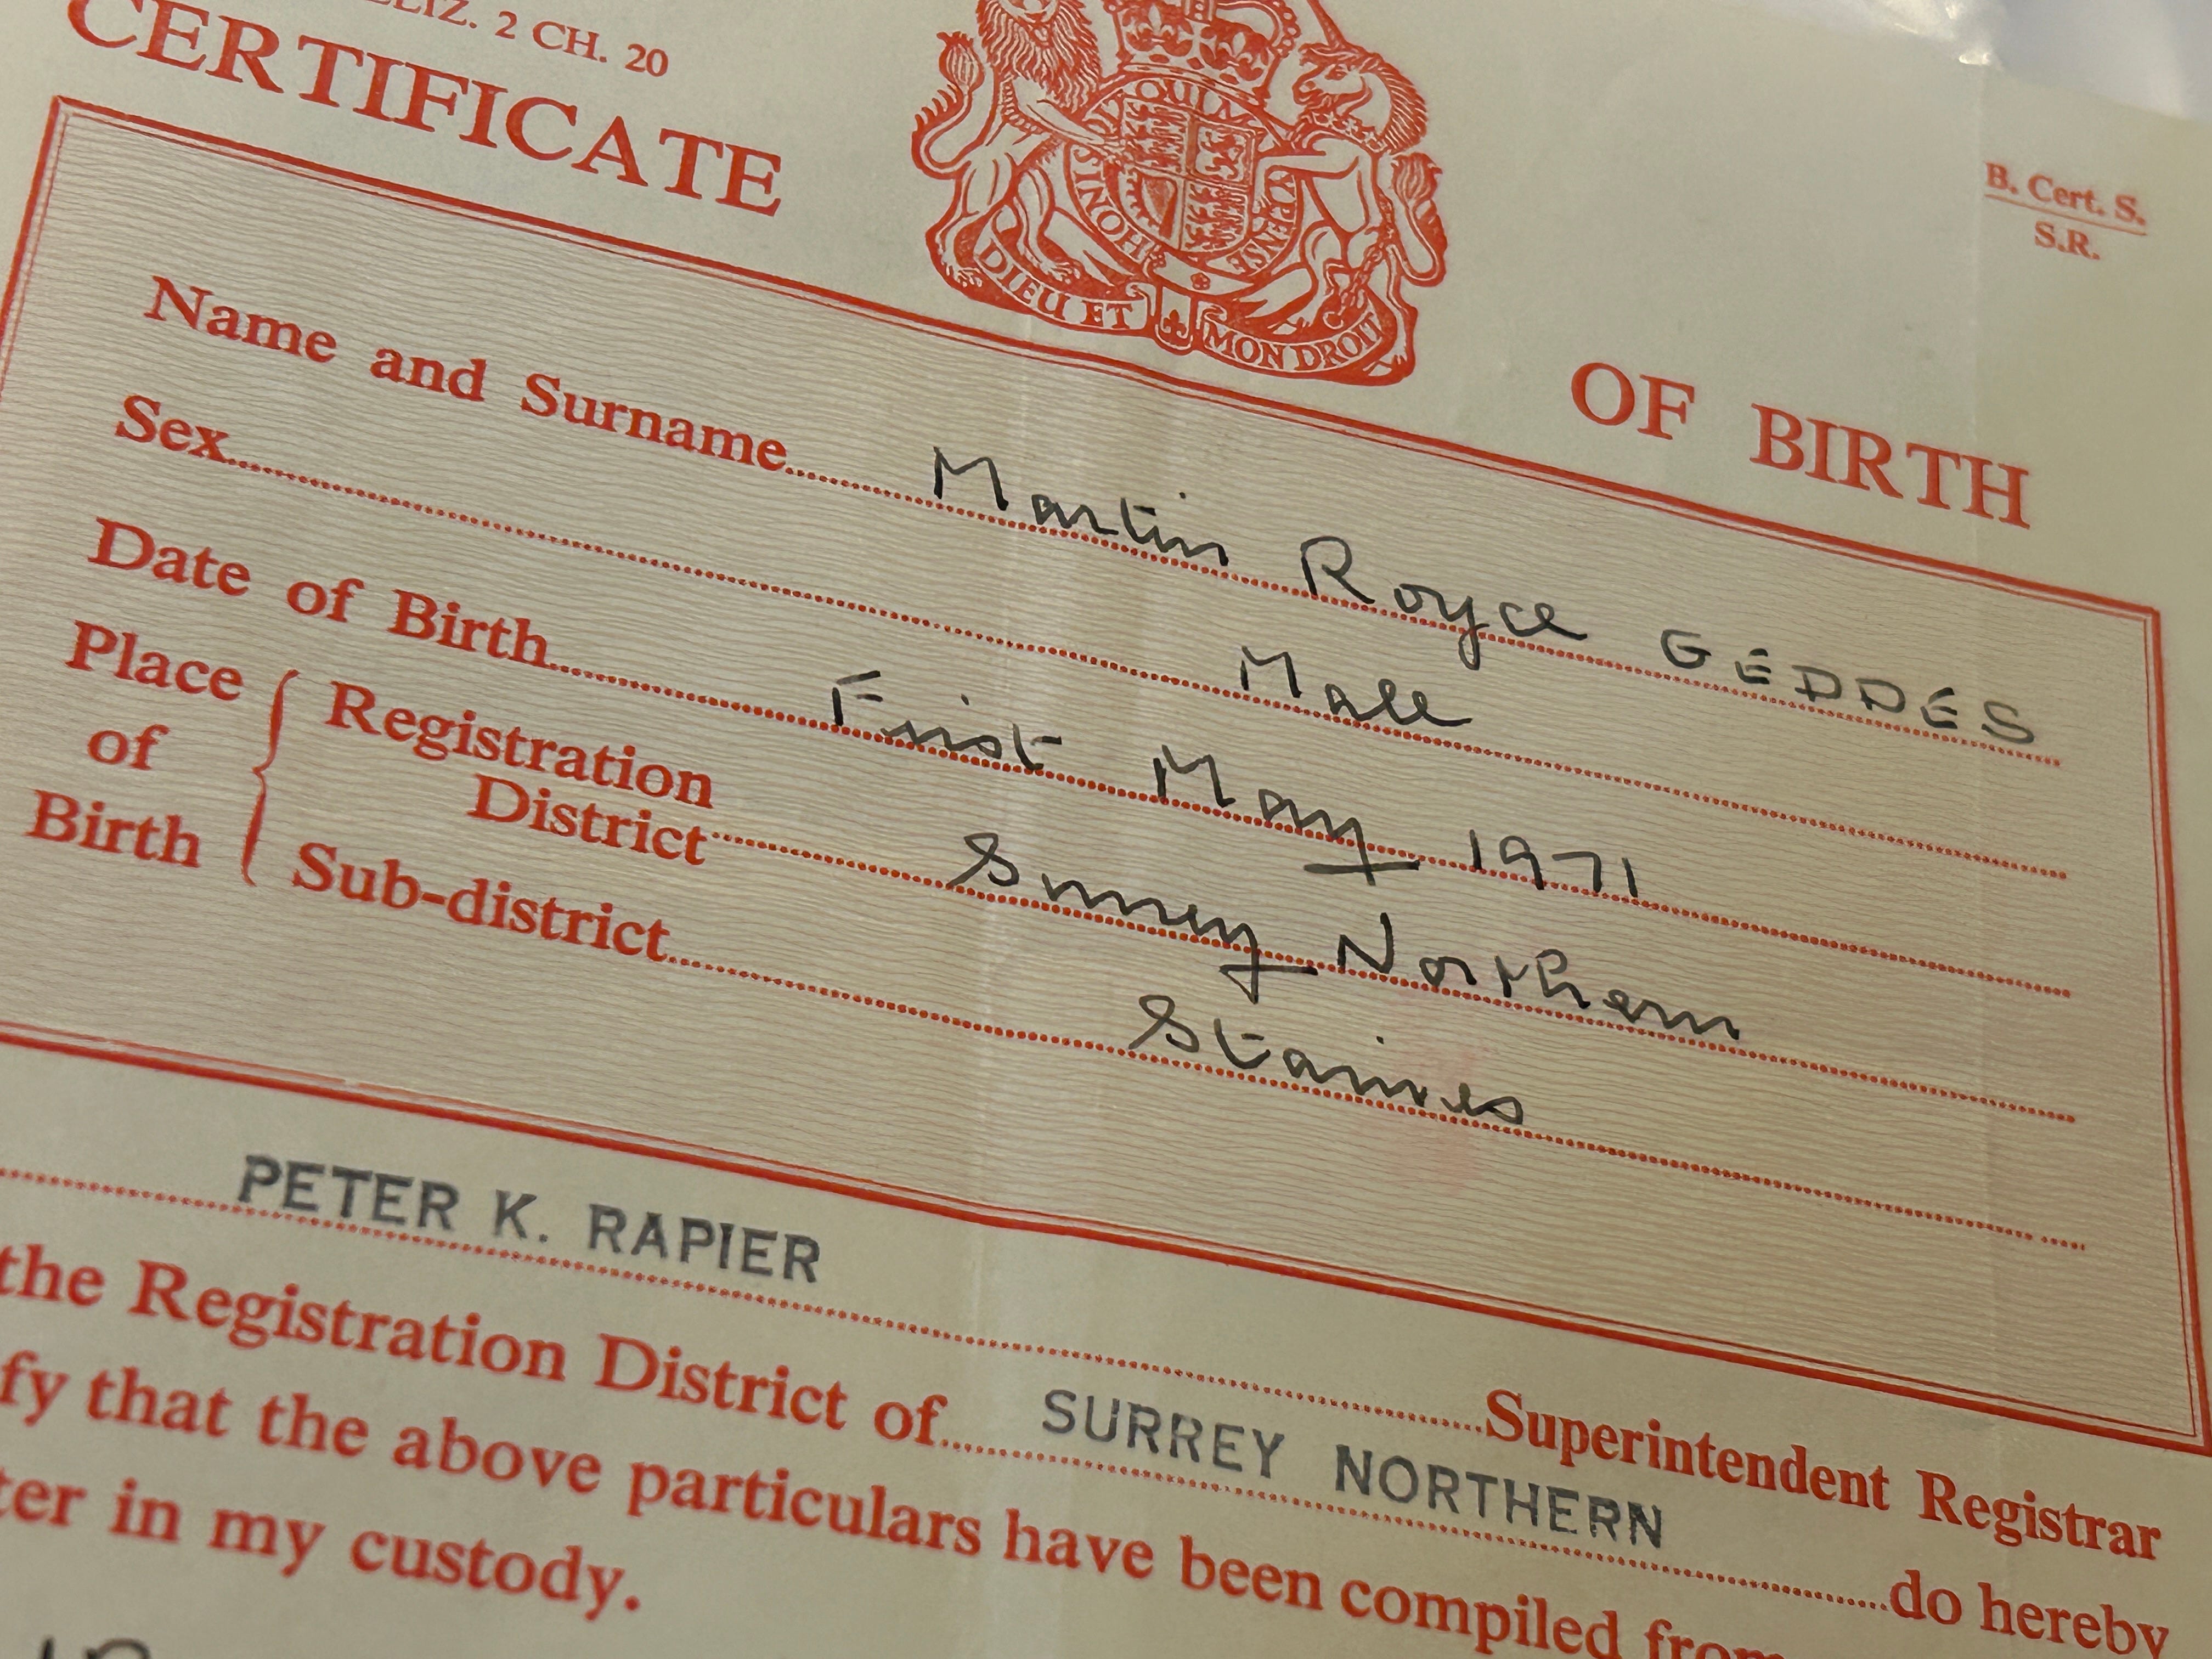 2 CH. 20
CERTIFICATE OF BIRTH
B. Cert. S.
S.R.
DIEU ET MON DROIT
Name and Surname Martin Royce GEDDES
Sex Male
Date of Birth First May 1971
Place of Birth
Registration District Surrey Northern
Sub-district Staines
PETER K. RAPIER Superintendent Registrar
the Registration District of SURREY NORTHERN do hereby
fy that the above particulars have been compiled from
ter in my custody.